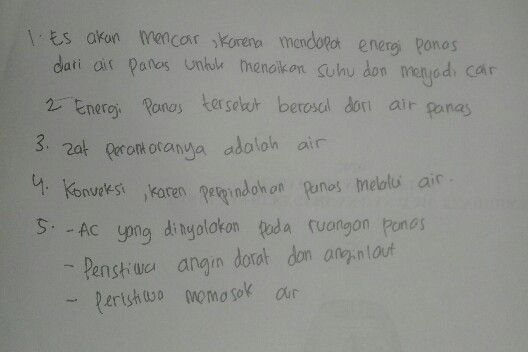 1. Es akan mencair, karena mendapat energi panas
dari air panas untuk menaikan suhu dan menjadi cair
2 Energi panas tersebut berasal dari air panas
3. zat perantaranya adalah air
4. Konveksi, karen perpindahan panas melalui air.
5. - AC yang dinyalakan pada ruangan panas
- Peristiwa angin darat dan angin laut
- Peristiwa memasak air